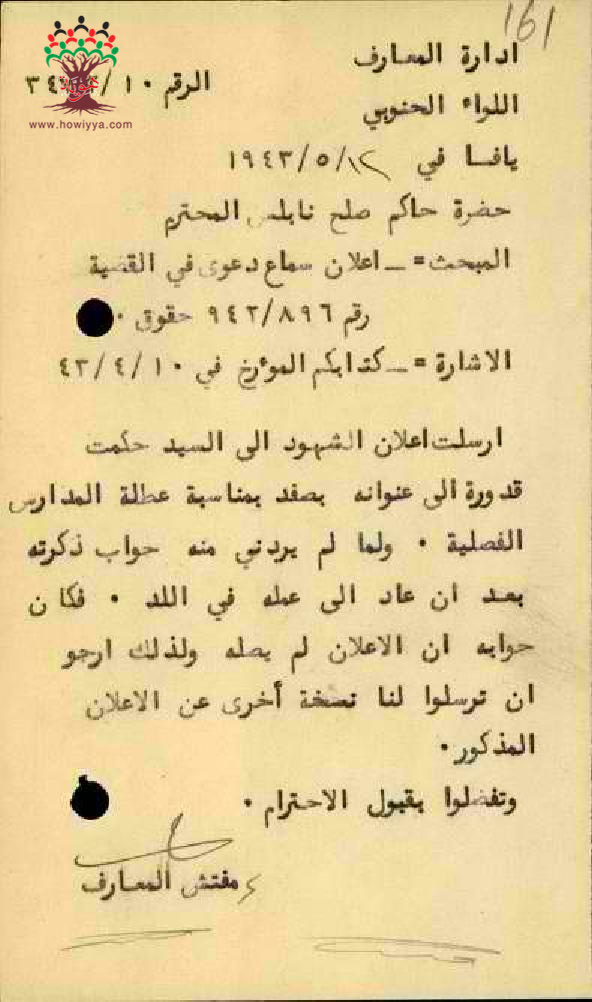 161
ادارة المعارف
الرقم ١٠/
www.howiyya.com
اللواء الجنوبي
يافا في ١٢/٥/١٩٤٣
حضرة حاكم صلح نابلس المحترم
المبحث=ـ اعلان سماع دعوى في القضية
رقم ٩٤٢/٨٩٦ حقوق ٠
الاشارة =ـ كتابكم المؤرخ في ٤٣/٤/١٠
ارسلت اعلان الشهود الى السيد حكمت
قدورة الى عنوانه بصفد بمناسبة عطلة المدارس
الفصلية ٠ ولما لم يردني منه جواب ذكرته
بعد ان عاد الى عمله في اللد ٠ فكان
جوابه ان الاعلان لم يصله ولذلك ارجو
ان ترسلوا لنا نسخة أخرى عن الاعلان
المذكور٠
وتفضلوا بقبول الاحترام ٠
مفتش المعارف